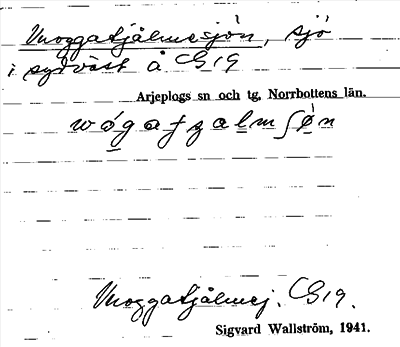 Moggatjålmesjön, sjö
i sydväst å CG 19
Arjeplogs sn och tg, Norrbottens län.
Moggatjålmej. CG 19.
Sigvard Wallström, 1941.